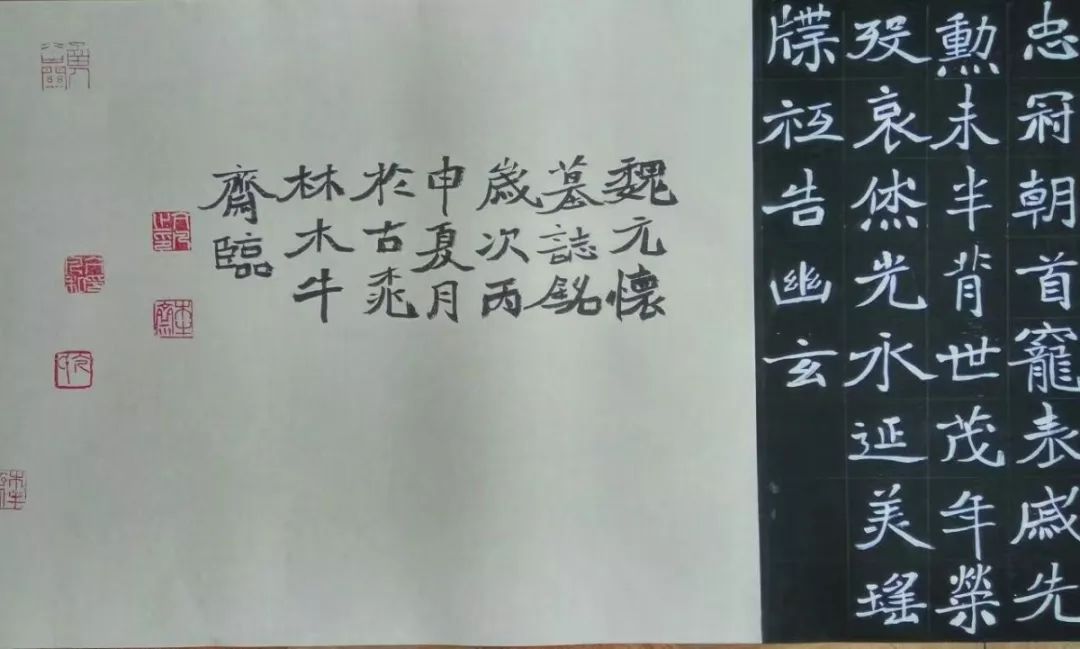 忠冠朝首寵表戚先
勳未半背世茂年榮
歿哀僚光永延美瑤
牒祗告幽玄
魏元懷
墓誌銘
歲次丙
申夏月
於古兆
林木牛
齋臨